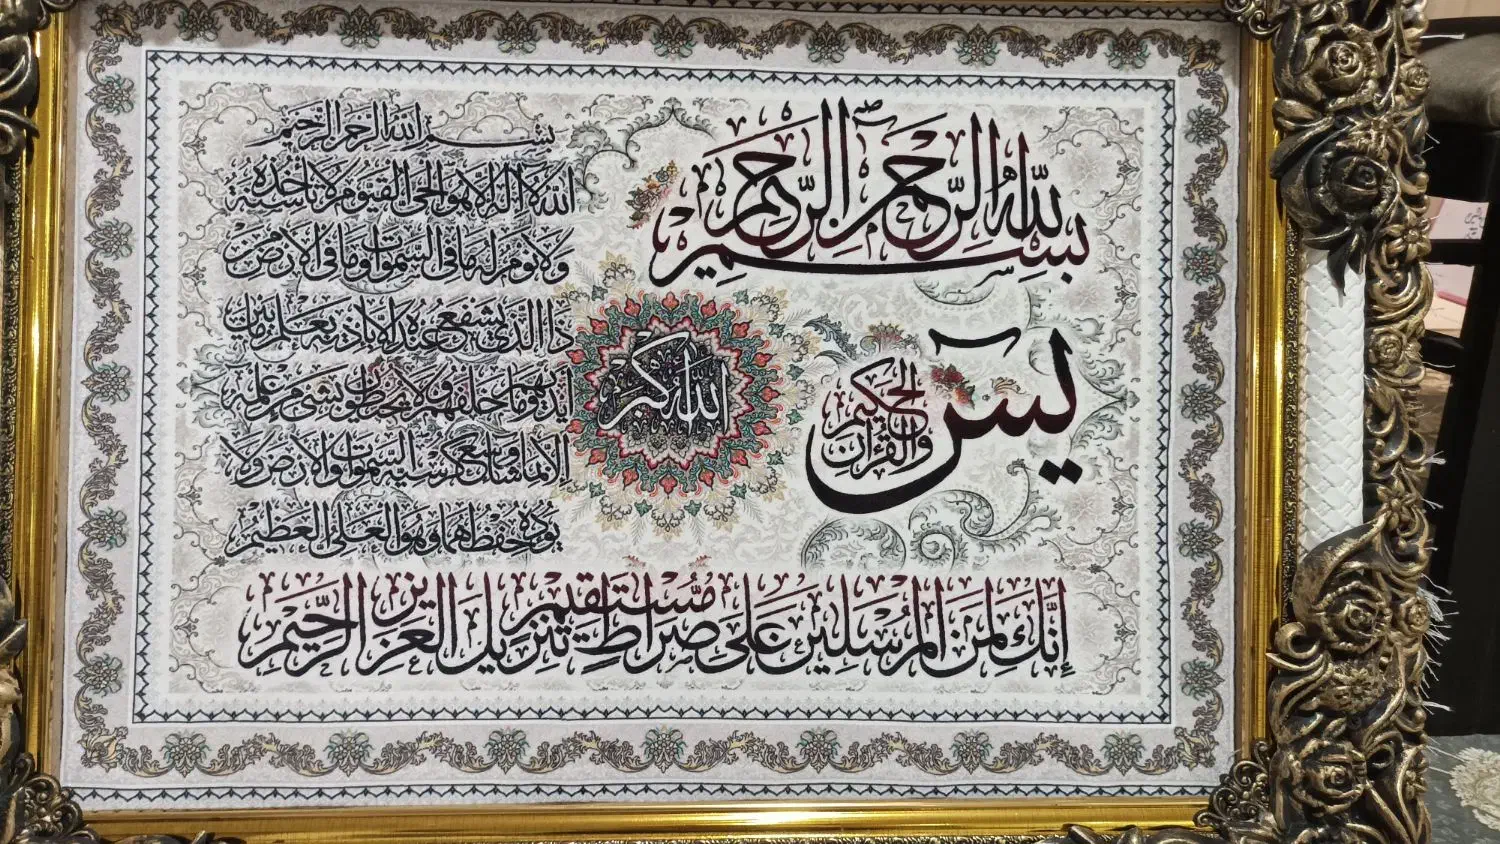 بِسْمِ اللهِ الرَّحْمٰنِ الرَّحِيمِ
يسٓ
والقرآن الحكيم
الله أكبر
بسم الله الرحمن الرحيم
الله لا إله إلا هو الحي القيوم لا تأخذه سنة
ولا نوم له ما في السموات وما في الأرض من
ذا الذي يشفع عنده إلا بإذنه يعلم ما بين
أيديهم وما خلفهم ولا يحيطون بشيء من علمه
إلا بما شاء وسع كرسيه السموات والأرض ولا
يؤده حفظهما وهو العلي العظيم
إِنَّكَ لَمِنَ الْمُرْسَلِينَ عَلَىٰ صِرَاطٍ مُّسْتَقِيمٍ تَنْزِيلَ الْعَزِيزِ الرَّحِيمِ